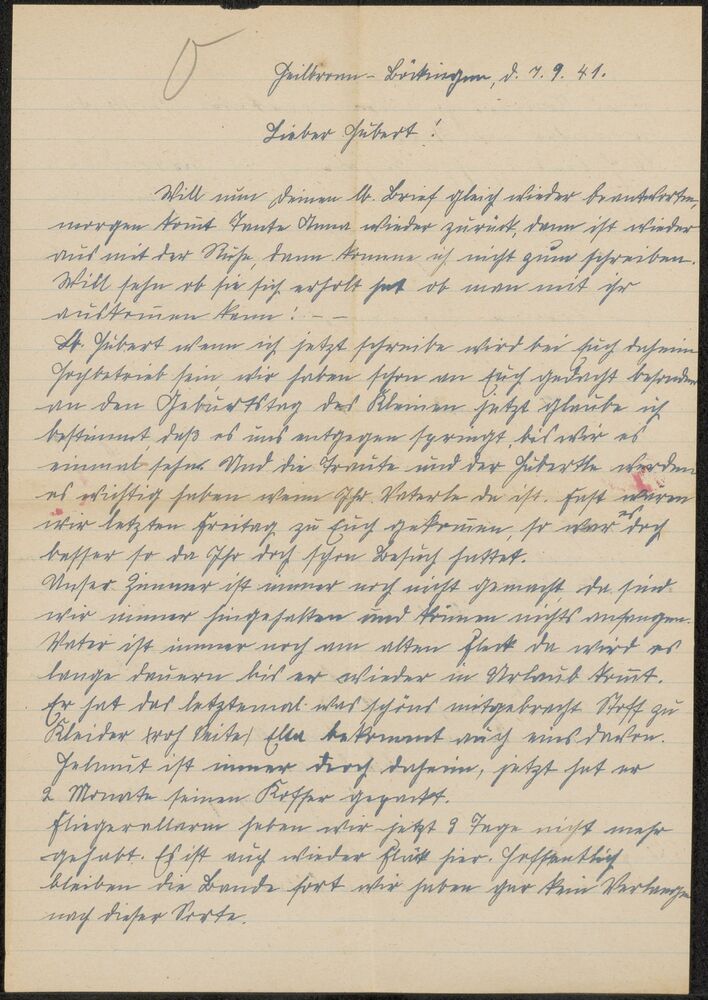 Heilbronn-Böckingen, d. 7. 9. 41.
Lieber Hubert!
Will nun Deinen lb. Brief gleich wieder beantworten,
morgen komt Tante Anna wieder zurück, dann ist wieder
aus mit der Ruhe, dann komme ich nicht zum schreiben.
Will sehn ob sie sich erholt hat ob man mit ihr
auskommen kann! - -
Lb. Hubert wenn ich jetzt schreibe wird bei Euch daheim
Hochbetrieb sein, wir haben schon an Euch gedacht besonders
an den Geburtstag des Kleinen jetzt glaube ich
bestimmt daß es uns entgegen springt, bis wir es
einmal sehn. Und die Traute und der Hubertle werden
es wichtig haben wenn Ihr Vaterle da ist. Fast waren
wir letzten Freitag zu Euch gekommen, so war es doch
besser so da Ihr doch schon Besuch hattet.
Unser Zimmer ist immer noch nicht gemacht, da sind
wir immer hingehalten und können nichts anfangen.
Vater ist immer noch am alten Fleck da wird es
lange dauern bis er wieder in Urlaub komt.
Er hat das letztemal was schöns mitgebracht Stoff zu
Kleider (roh Seite) Ella bekommt auch eins davon.
Helmut ist immer noch daheim, jetzt hat er
2 Monate seinen Koffer gepackt.
Fliegerallarm haben wir jetzt 9 Tage nicht mehr
gehabt. Es ist auch wieder hier. Hoffentlich
bleiben die Bande fort wir haben gar kein Verlangen
nach dieser Sorte.